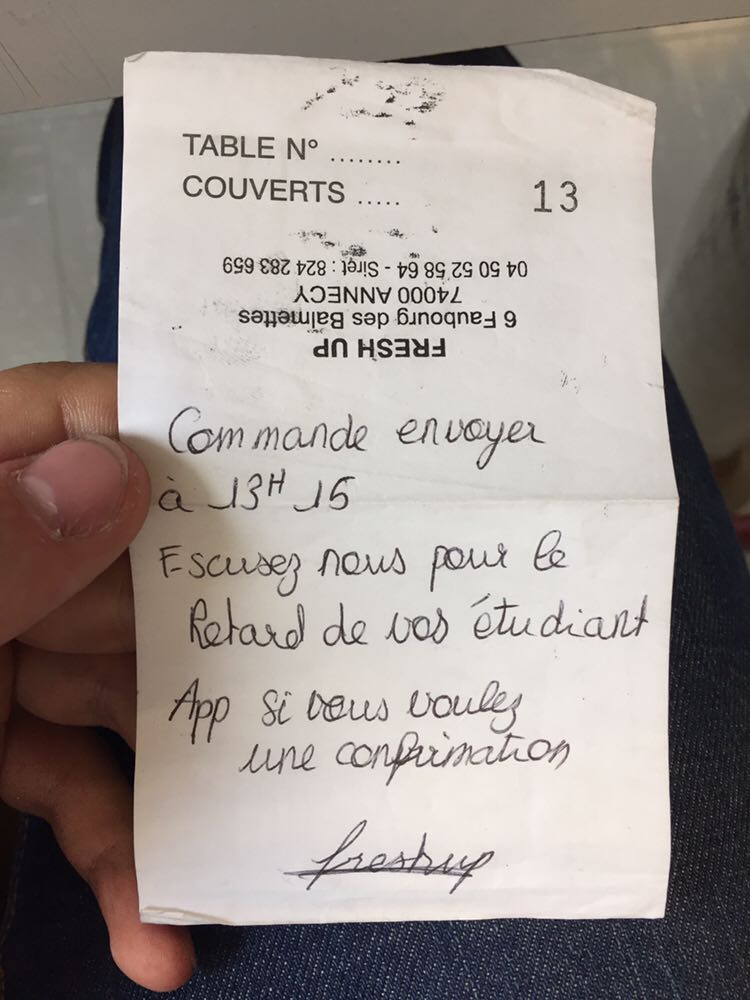 TABLE N° ........
COUVERTS ..... 13
FRESH UP
6 Faubourg des Balmettes
74000 ANNECY
04 50 52 58 64 - Siret : 824 283 659
Commande envoyer
à 13H 15
Escusez nous pour le
Retard de vos étudiant
App si vous voulez
une confirmation
freshup